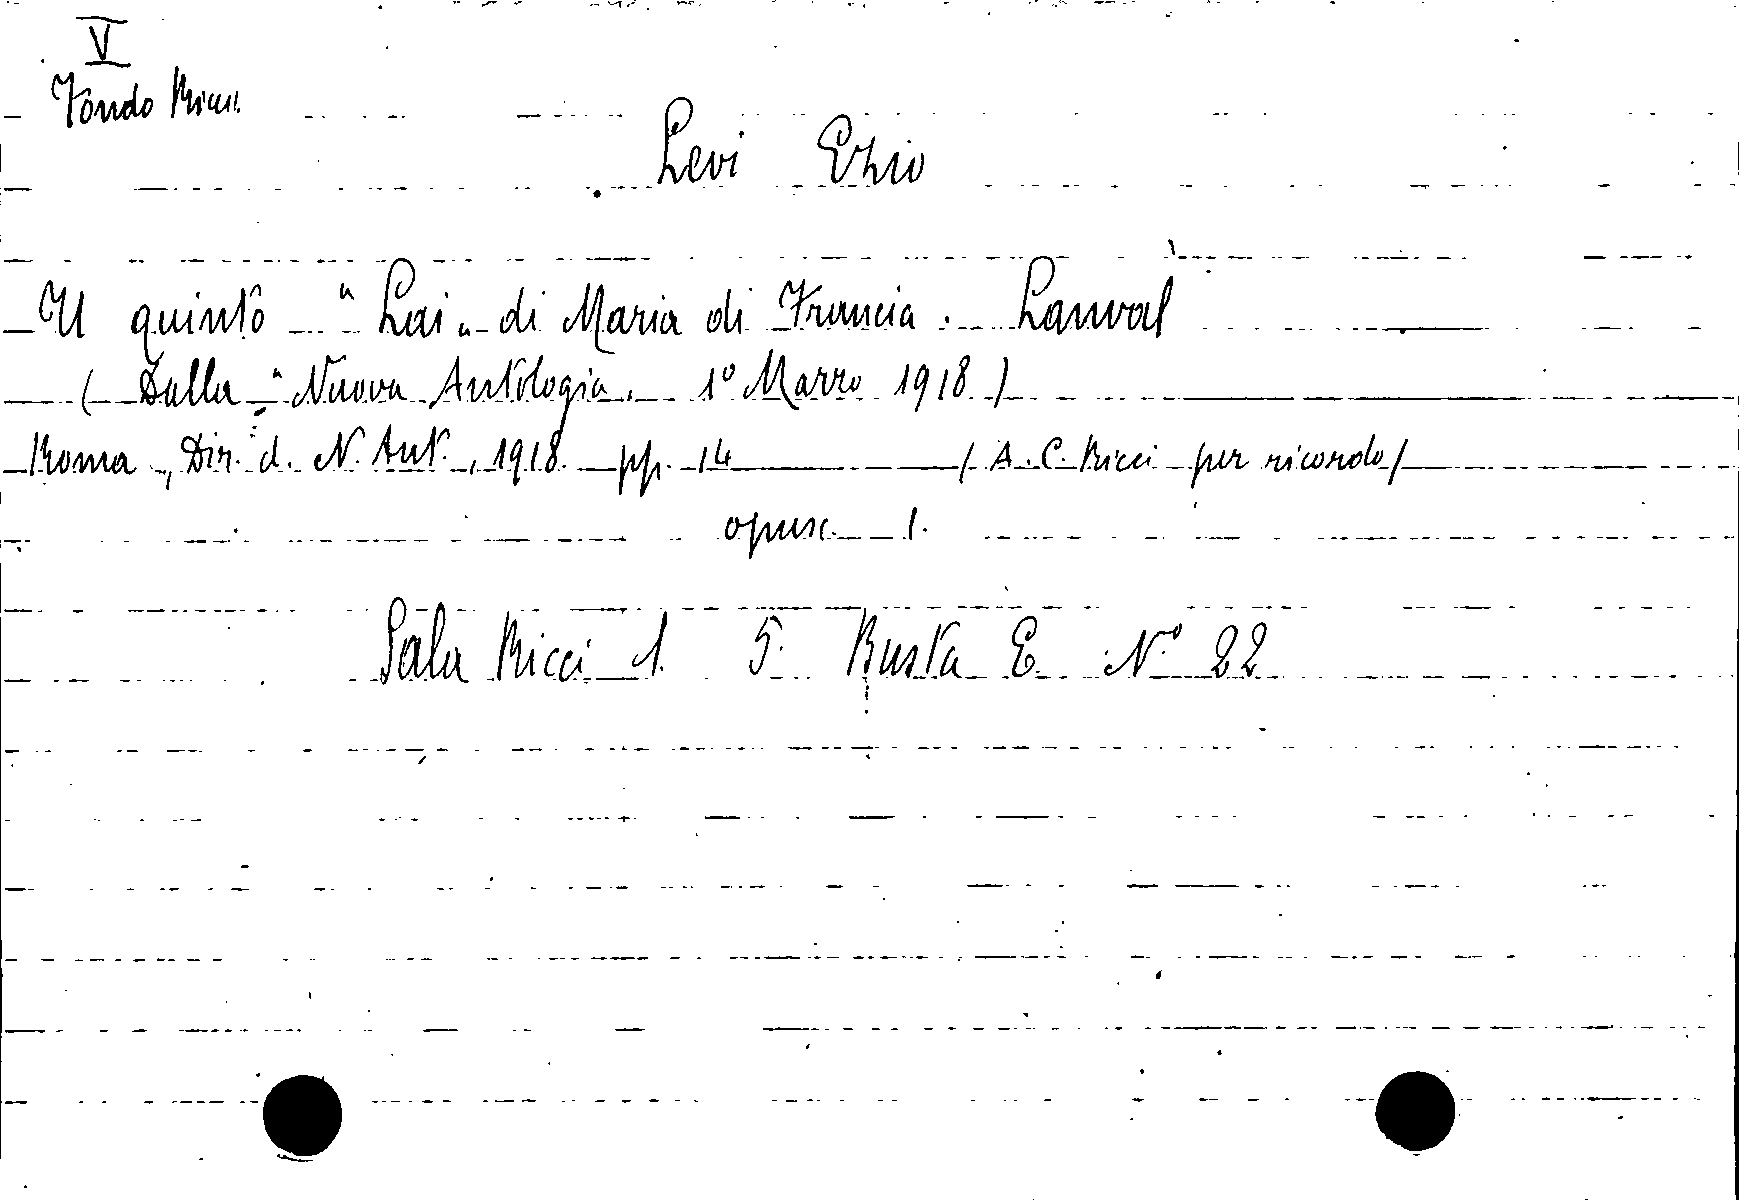 V
Fondo Ricci
Levi Ezio
Il quinto "Lai" di Maria di Francia. Lanval
(Dalla "Nuova Antologia. 1° Marzo 1918)
Roma, Dir. d. N. Ant., 1918 pp. 14 (A. C. Ricci per ricordo)
opusc. 1.
Sala Ricci 1. 5. Busta E. N.° 22